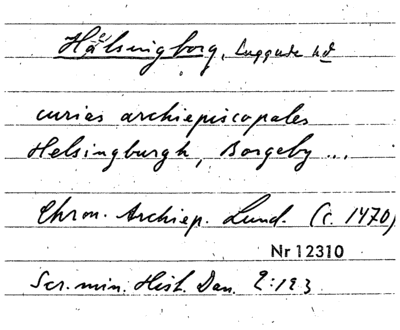 Hälsingborg, Luggude hd
curias archiepiscopales
Helsingburgh, Borgeby ...
Chron. Archiep. Lund. (c. 1470)
Nr 12310
Scr. min. Hist. Dan. 2:123